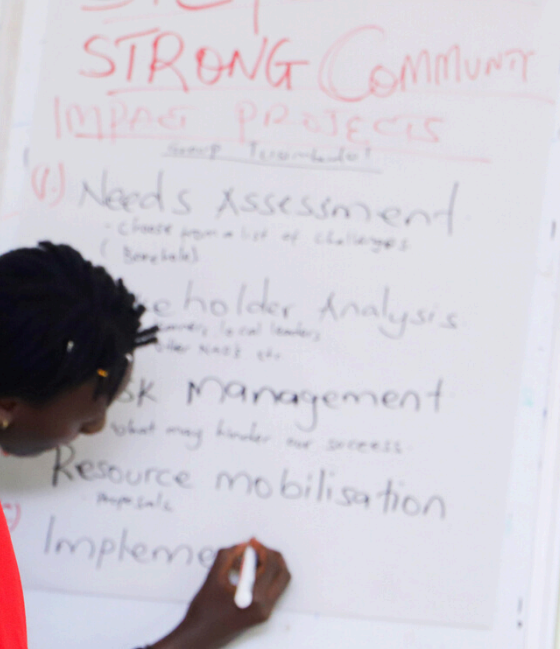 STRONG COMMUNITY
IMPACT PROJECTS
Group
(1.) Needs Assessment
- Choose from a list of challenges
( Borehole)
eholder Analysis
local leaders
sk Management
what may hinder our success
Resource mobilisation
- Proposals
Impleme